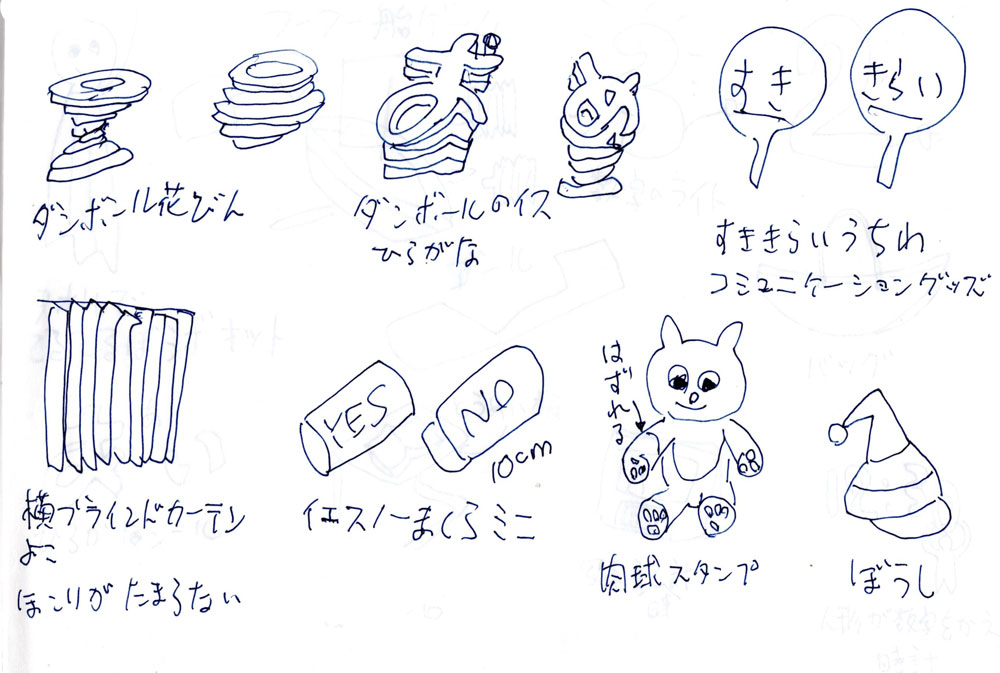 すき
きらい
ダンボール花びん
ダンボールのイス
ひらがな
すききらいうちわ
コミュニケーショングッズ
YES
NO
10cm
はずれる
横ブラインドカーテン
よこ
ほこりがたまらない
イエスノーまくらミニ
肉球スタンプ
ぼうし